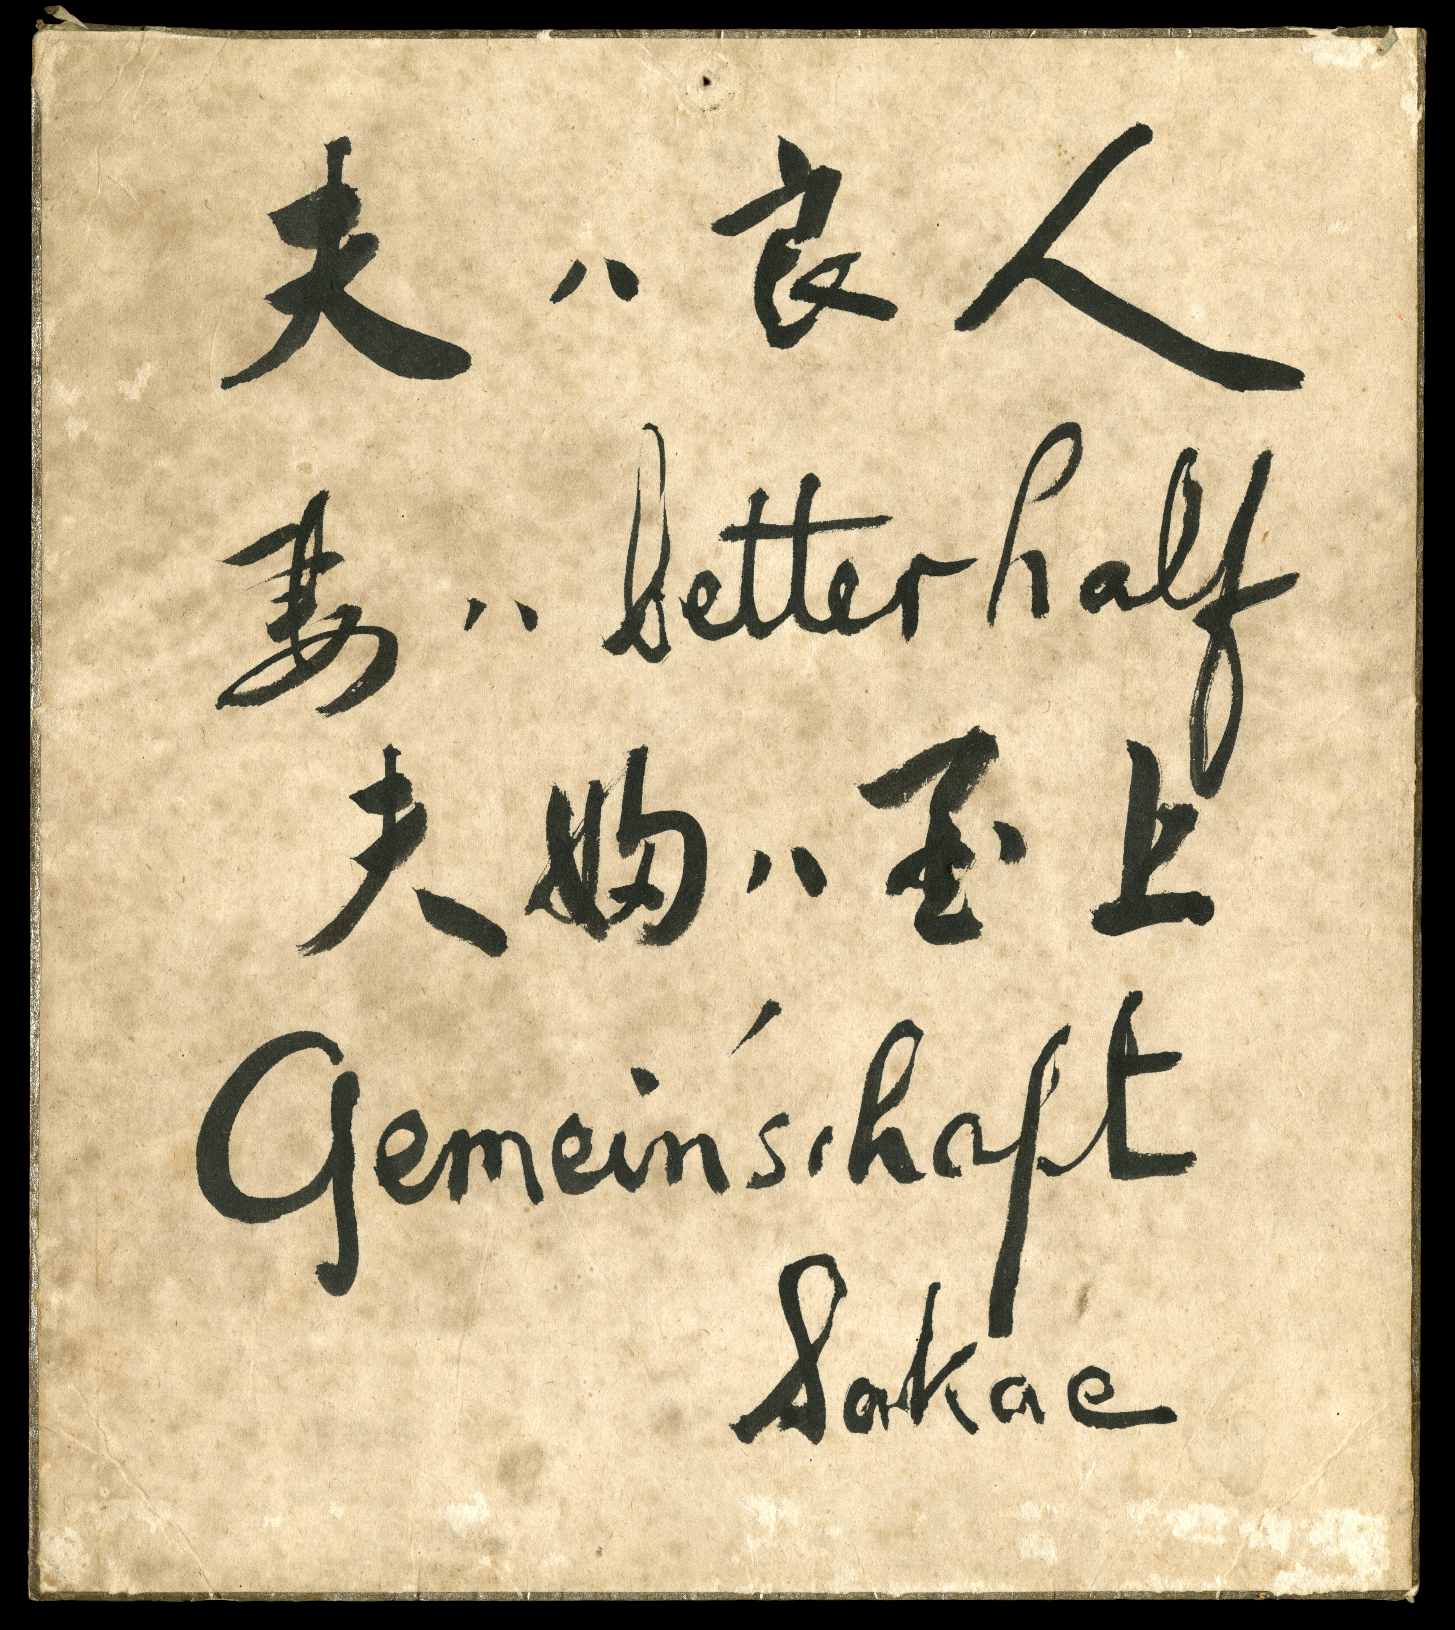 夫ハ良人
妻ハ better half
夫婦ハ至上
Gemein'schaft
Sakae